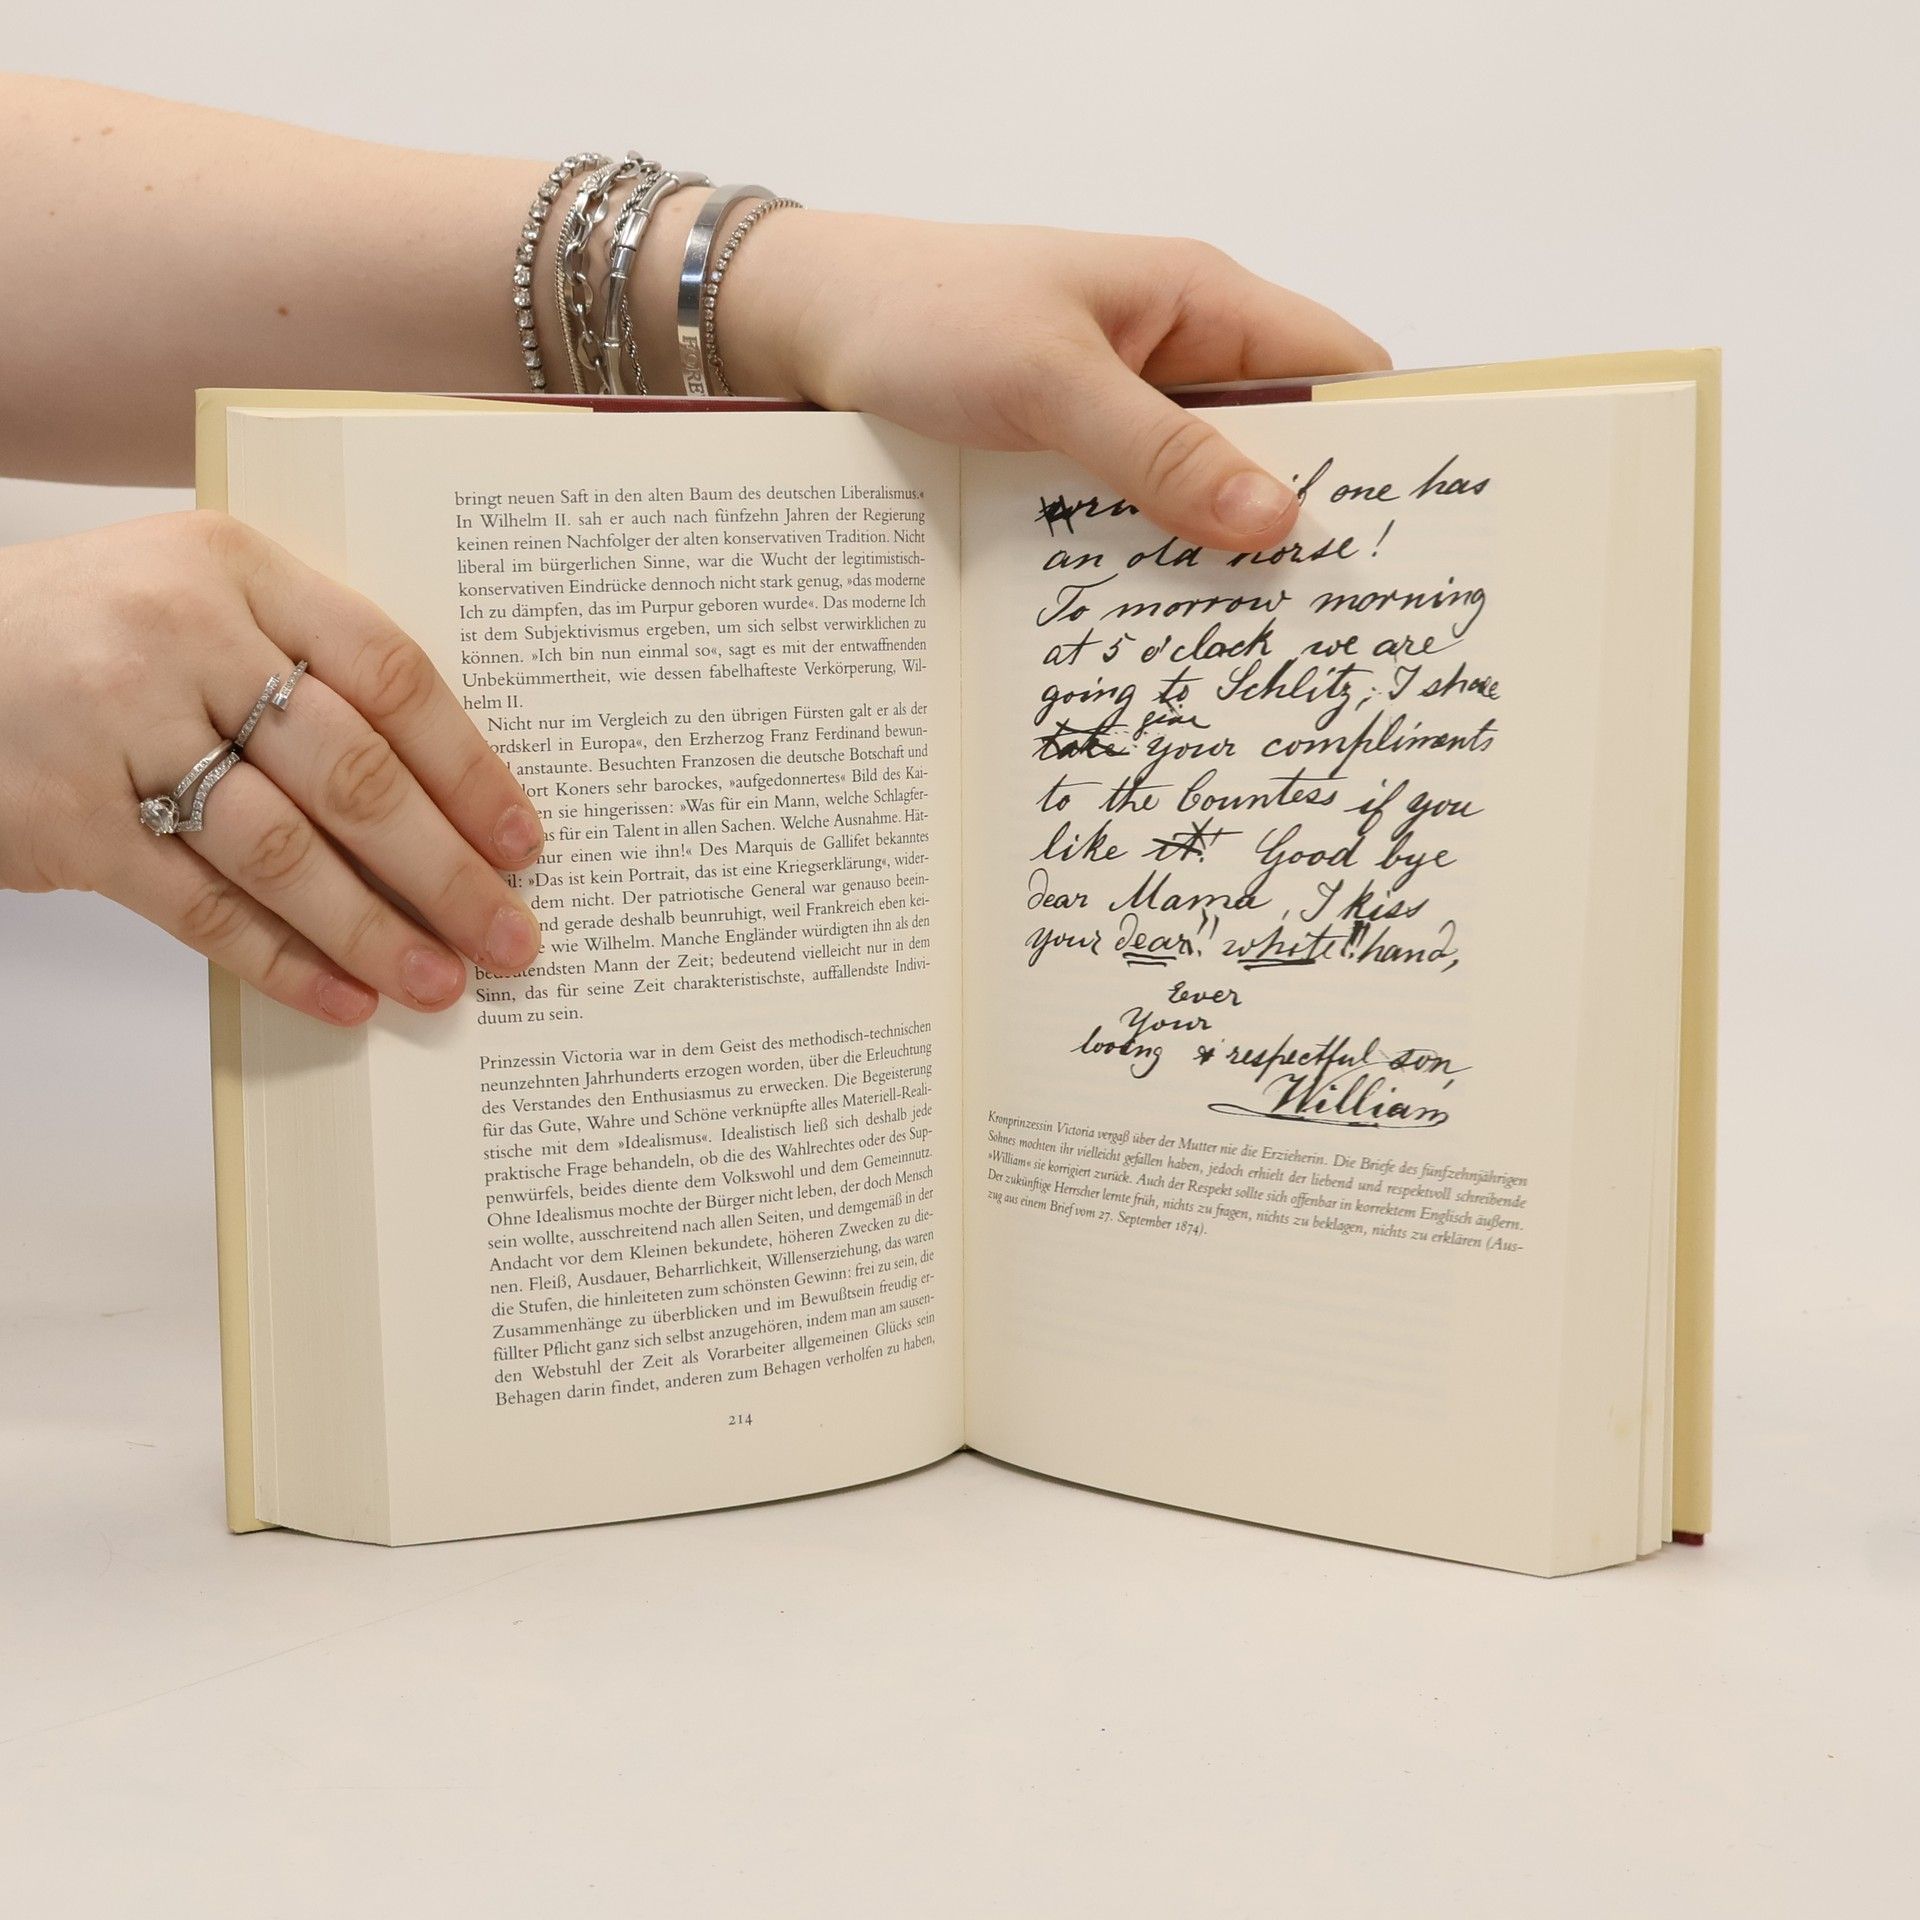 FORE
bringt neuen Saft in den alten Baum des deutschen Liberalismus.«
In Wilhelm II. sah er auch nach fünfzehn Jahren der Regierung
keinen reinen Nachfolger der alten konservativen Tradition. Nicht
liberal im bürgerlichen Sinne, war die Wucht der legitimistisch-
konservativen Eindrücke dennoch nicht stark genug, »das moderne
Ich zu dämpfen, das im Purpur geboren wurde«. Das moderne Ich
ist dem Subjektivismus ergeben, um sich selbst verwirklichen zu
können. »Ich bin nun einmal so«, sagt es mit der entwaffnenden
Unbekümmertheit, wie dessen fabelhafteste Verkörperung, Wil-
helm II.
Nicht nur im Vergleich zu den übrigen Fürsten galt er als der
ordskerl in Europa«, den Erzherzog Franz Ferdinand bewun-
anstaunte. Besuchten Franzosen die deutsche Botschaft und
dort Koners sehr barockes, »aufgedonnertes« Bild des Kai-
sie hingerissen: »Was für ein Mann, welche Schlagfer-
für ein Talent in allen Sachen. Welche Ausnahme. Hät-
nur einen wie ihn!« Des Marquis de Gallifet bekanntes
»Das ist kein Portrait, das ist eine Kriegserklärung«, wider-
dem nicht. Der patriotische General war genauso beein-
nd gerade deshalb beunruhigt, weil Frankreich eben kei-
wie Wilhelm. Manche Engländer würdigten ihn als den
bedeutendsten Mann der Zeit; bedeutend vielleicht nur in dem
Sinn, das für seine Zeit charakteristischste, auffallendste Indivi-
duum zu sein.
Prinzessin Victoria war in dem Geist des methodisch-technischen
neunzehnten Jahrhunderts erzogen worden, über die Erleuchtung
des Verstandes den Enthusiasmus zu erwecken. Die Begeisterung
für das Gute, Wahre und Schöne verknüpfte alles Materiell-Reali-
stische mit dem »Idealismus«. Idealistisch ließ sich deshalb jede
praktische Frage behandeln, ob die des Wahlrechtes oder des Sup-
penwürfels, beides diente dem Volkswohl und dem Gemeinnutz.
Ohne Idealismus mochte der Bürger nicht leben, der doch Mensch
sein wollte, ausschreitend nach allen Seiten, und demgemäß in der
Andacht vor dem Kleinen bekundete, höheren Zwecken zu die-
nen. Fleiß, Ausdauer, Beharrlichkeit, Willenserziehung, das waren
die Stufen, die hinleiteten zum schönsten Gewinn: frei zu sein, die
Zusammenhänge zu überblicken und im Bewußtsein freudig er-
füllter Pflicht ganz sich selbst anzugehören, indem man am sausen-
den Webstuhl der Zeit als Vorarbeiter allgemeinen Glücks sein
Behagen darin findet, anderen zum Behagen verholfen zu haben,
214
if one has
an old horse!
To morrow morning
at 5 o'clock we are
going to Schlitz; I shall
give
take your compliments
to the Countess if you
like it! Good bye
dear Mama, I kiss
your dear!! white!! hand,
Ever
Your
loving & respectful son,
William
Kronprinzessin Victoria vergaß über der Mutter nie die Erzieherin. Die Briefe des fünfzehnjährigen
Sohnes mochten ihr vielleicht gefallen haben, jedoch erhielt der liebend und respektvoll schreibende
»William« sie korrigiert zurück. Auch der Respekt sollte sich offenbar in korrektem Englisch äußern.
Der zukünftige Herrscher lernte früh, nichts zu fragen, nichts zu beklagen, nichts zu erklären (Aus-
zug aus einem Brief vom 27. September 1874).